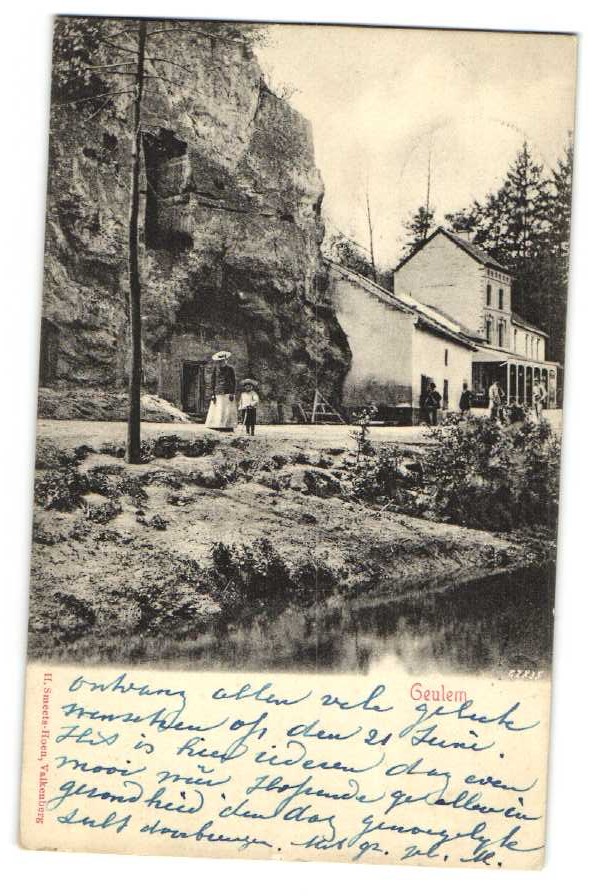 Geulem
ontvang allen vele geluk
wenschen op den 21 Juni.
Het is hier iederen dag even
mooi Hopende gij allen in
gezondheid den dag genoegelijk
zult doorbrengen. Met gr. M.
H. Smeets-Hoen, Valkenburg